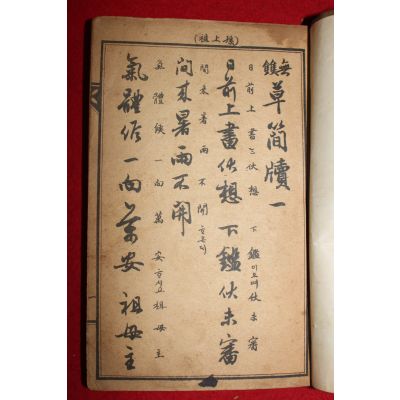 (孫上祖)
無
草簡牘 一
日前上書는 伏想 下鑑이오며 伏未審
日前上書伏想 下鑑伏未審
間來暑雨不開ᄒᆞ온ᄃᆡ
間來暑雨不開
氣體候一向萬安ᄒᆞ시고 祖母主
氣體候一向萬安 祖母主